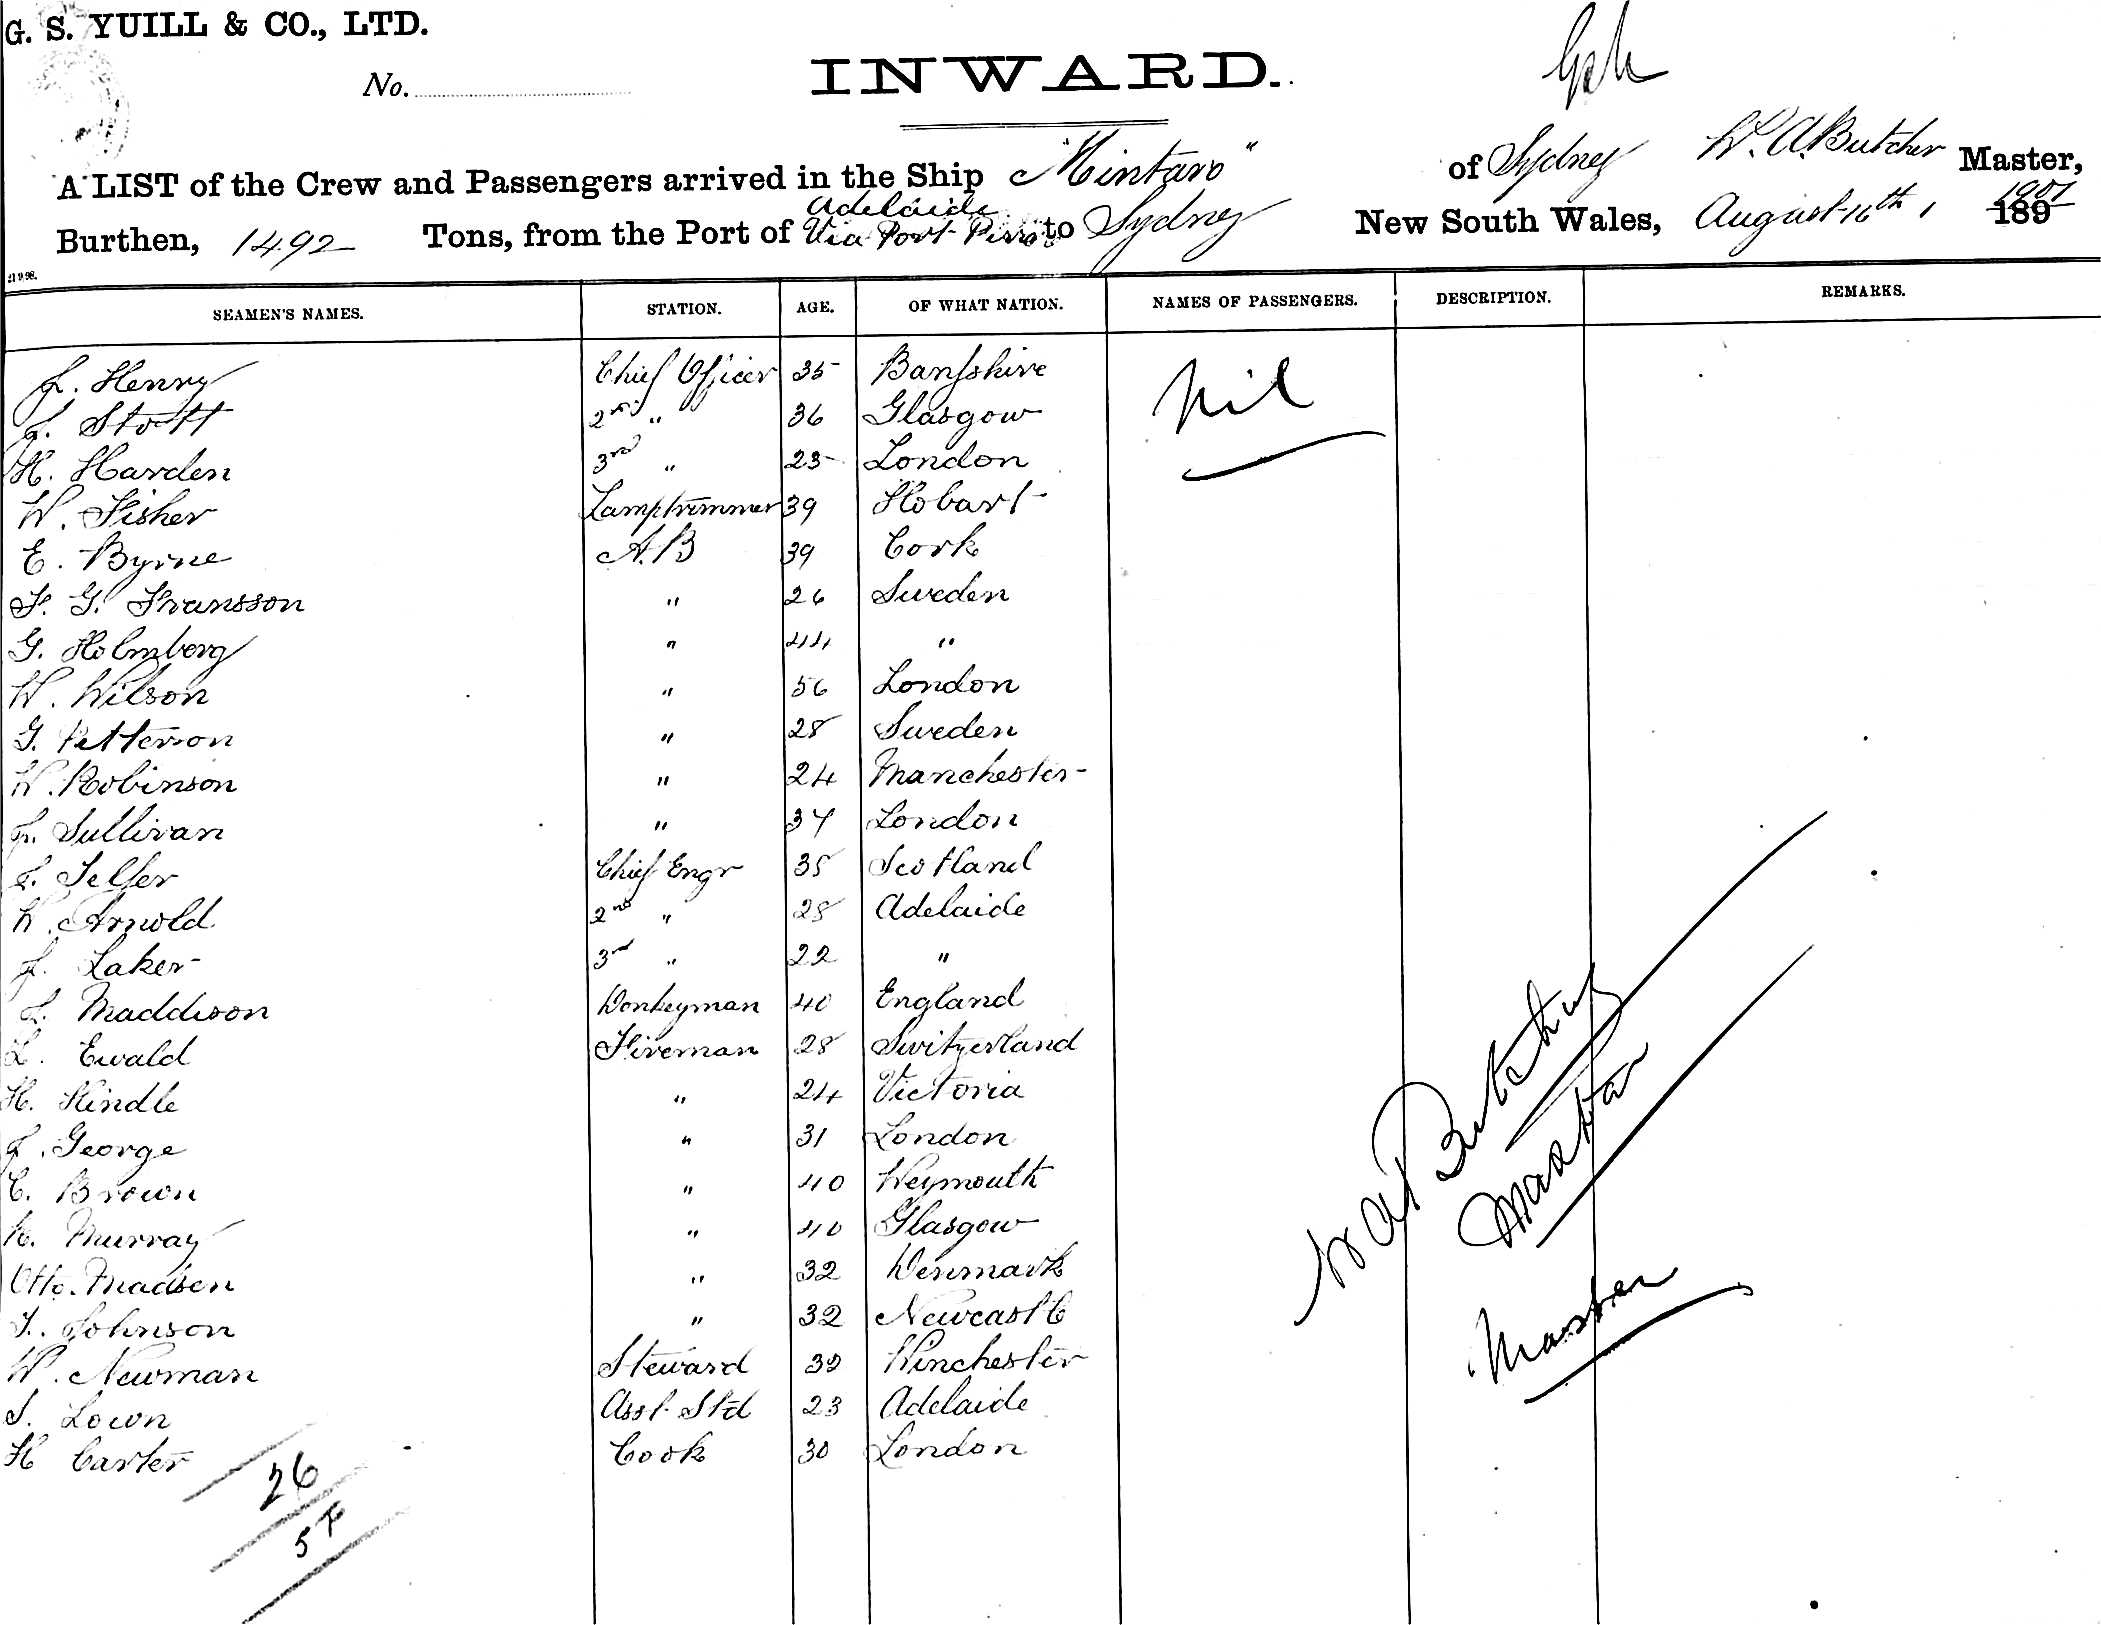 G. S. YUILL & CO., LTD.
No.
INWARD.
A LIST of the Crew and Passengers arrived in the Ship "Mintaro" of Sydney W. A. Butcher Master,
Burthen, 1492 Tons, from the Port of Adelaide Via Port Pirie to Sydney New South Wales, August 16th, 1901 189
SEAMEN'S NAMES. STATION. AGE. OF WHAT NATION. NAMES OF PASSENGERS. DESCRIPTION. REMARKS.
J. Henry Chief Officer 35 Banfshire Nil
J. Stott 2nd " 36 Glasgow
H. Harden 3rd " 23 London
W. Fisher Lamptrimmer 39 Hobart
E. Byrne A.B 39 Cork
F. G. Fransson " 26 Sweden
G. Holmberg " 44 "
W. Wilson " 56 London
G. Petterson " 28 Sweden
W. Robinson " 24 Manchester
J. Sullivan " 34 London
Telfer Chief Engr 35 Scotland
W. Arnold 2nd " 28 Adelaide
J. Laker 3rd " 22 "
J. Maddison Donkeyman 40 England
L. Ewald Fireman 28 Switzerland
H. Hindle " 24 Victoria
J. George " 31 London
C. Brown " 40 Weymouth
H. Murray " 40 Glasgow
Otto. Madsen " 32 Denmark
J. Johnson " 32 Newcastle
W. Newman Steward 32 Winchester
Lown Asst. Std 23 Adelaide
H Carter Cook 30 London
26
W A Butcher
Master
Master